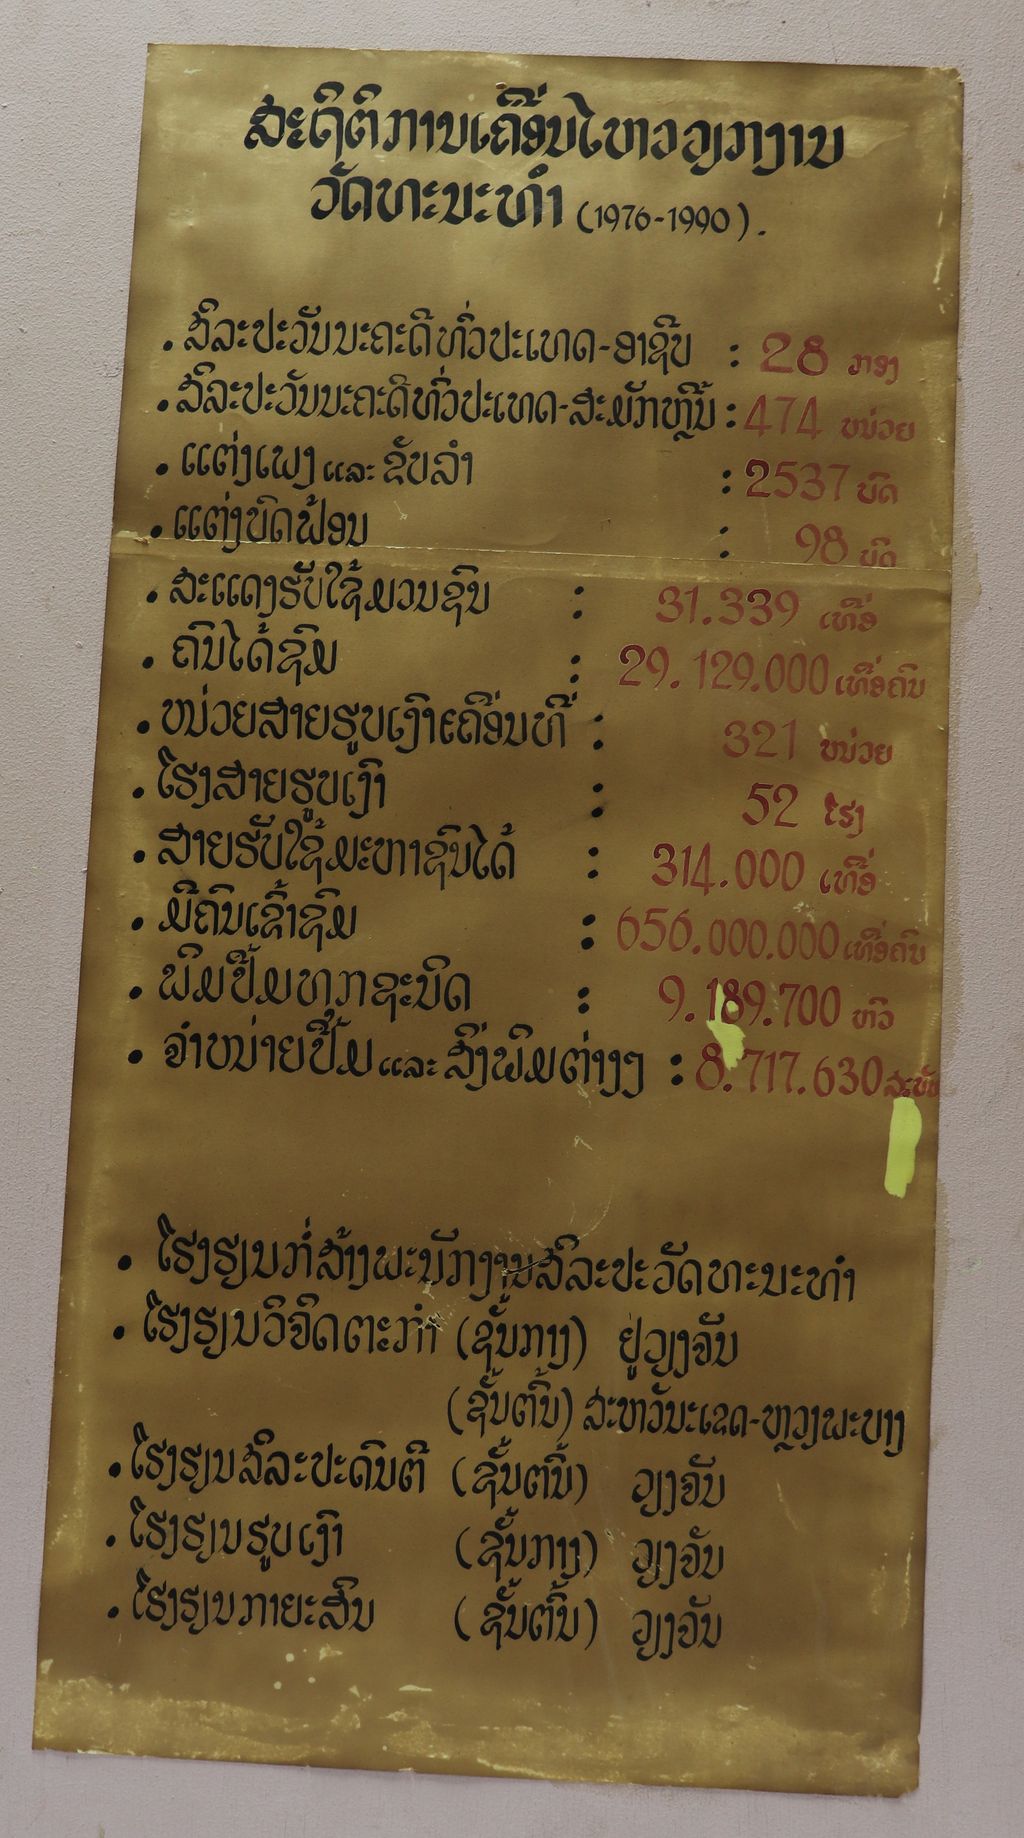 ສະຖິຕິການເຄື່ອນໄຫວວຽກງານ
ວັດທະນະທຳ (1976-1990).
. ສິລະປະວັນນະຄະດີທົ່ວປະເທດ-ອາຊີບ : 28 ກອງ
. ສິລະປະວັນນະຄະດີທົ່ວປະເທດ-ສະມັກຫຼິ້ນ : 474 ໜ່ວຍ
. ແຕ່ງເພງ ແລະ ຂັບລຳ : 2537 ບົດ
. ແຕ່ງບົດຟ້ອນ : 98 ບົດ
. ສະແດງຮັບໃຊ້ມວນຊົນ : 31.339 ເທື່ອ
. ຄົນໄດ້ຊົມ : 29.129.000 ເທື່ອຄົນ
. ໜ່ວຍສາຍຮູບເງົາເຄື່ອນທີ່ : 321 ໜ່ວຍ
. ໂຮງສາຍຮູບເງົາ : 52 ໂຮງ
. ສາຍຮັບໃຊ້ມະຫາຊົນໄດ້ : 314.000 ເທື່ອ
. ມີຄົນເຂົ້າຊົມ : 656.000.000 ເທື່ອຄົນ
. ພິມປຶ້ມທຸກຊະນິດ : 9.189.700 ຫົວ
. ຈຳໜ່າຍປຶ້ມ ແລະ ສິ່ງພິມຕ່າງໆ : 8.717.630 ສະບັບ
. ໂຮງຮຽນກໍ່ສ້າງພະນັກງານສິລະປະວັດທະນະທຳ
. ໂຮງຮຽນວິຈິດຕະກຳ (ຊັ້ນກາງ) ຢູ່ວຽງຈັນ
(ຊັ້ນຕົ້ນ) ສະຫວັນນະເຂດ-ຫຼວງພະບາງ
. ໂຮງຮຽນສິລະປະດົນຕີ (ຊັ້ນຕົ້ນ) ວຽງຈັນ
. ໂຮງຮຽນຮູບເງົາ (ຊັ້ນກາງ) ວຽງຈັນ
. ໂຮງຮຽນກາຍະສິນ (ຊັ້ນຕົ້ນ) ວຽງຈັນ